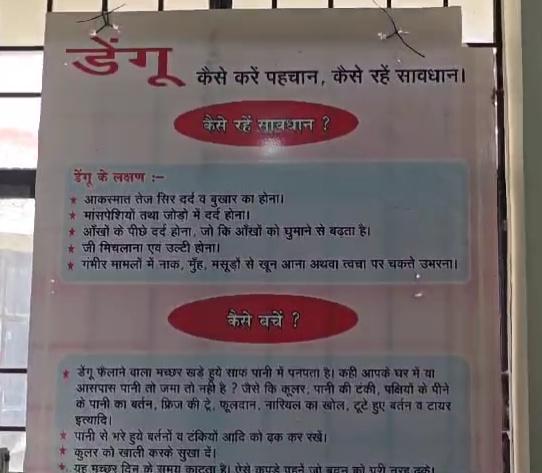 डेंगू कैसे करें पहचान, कैसे रहें सावधान।
कैसे रहें सावधान ?
डेंगू के लक्षण :–
★ आकस्मात तेज सिर दर्द व बुखार का होना।
★ मांसपेशियों तथा जोडो में दर्द होना।
★ आँखों के पीछे दर्द होना, जो कि आँखों को घुमाने से बढ़ता है।
★ जी मिचलाना एवं उल्टी होना।
★ गंभीर मामलों में नाक, मुँह, मसूडों से खून आना अथवा त्वचा पर चकत्ते उभरना।
कैसे बचें ?
★ डेंगू फैलाने वाला मच्छर खडे हुये साफ पानी में पनपता है। कही आपके घर में या
आसपास पानी तो जमा तो नही है ? जैसे कि कूलर, पानी की टंकी, पक्षियों के पीने
के पानी का बर्तन, फ्रिज की ट्रे, फूलदान, नारियल का खोल, टूटे हुए बर्तन व टायर
इत्यादि।
★ पानी से भरे हुये बर्तनों व टंकियों आदि को ढक कर रखें।
★ कूलर को खाली करके सुखा दें।
★ यह मच्छर दिन के समय काटता है। ऐसे कपडे पहनें जो बदन को पूरी तरह ढकें।